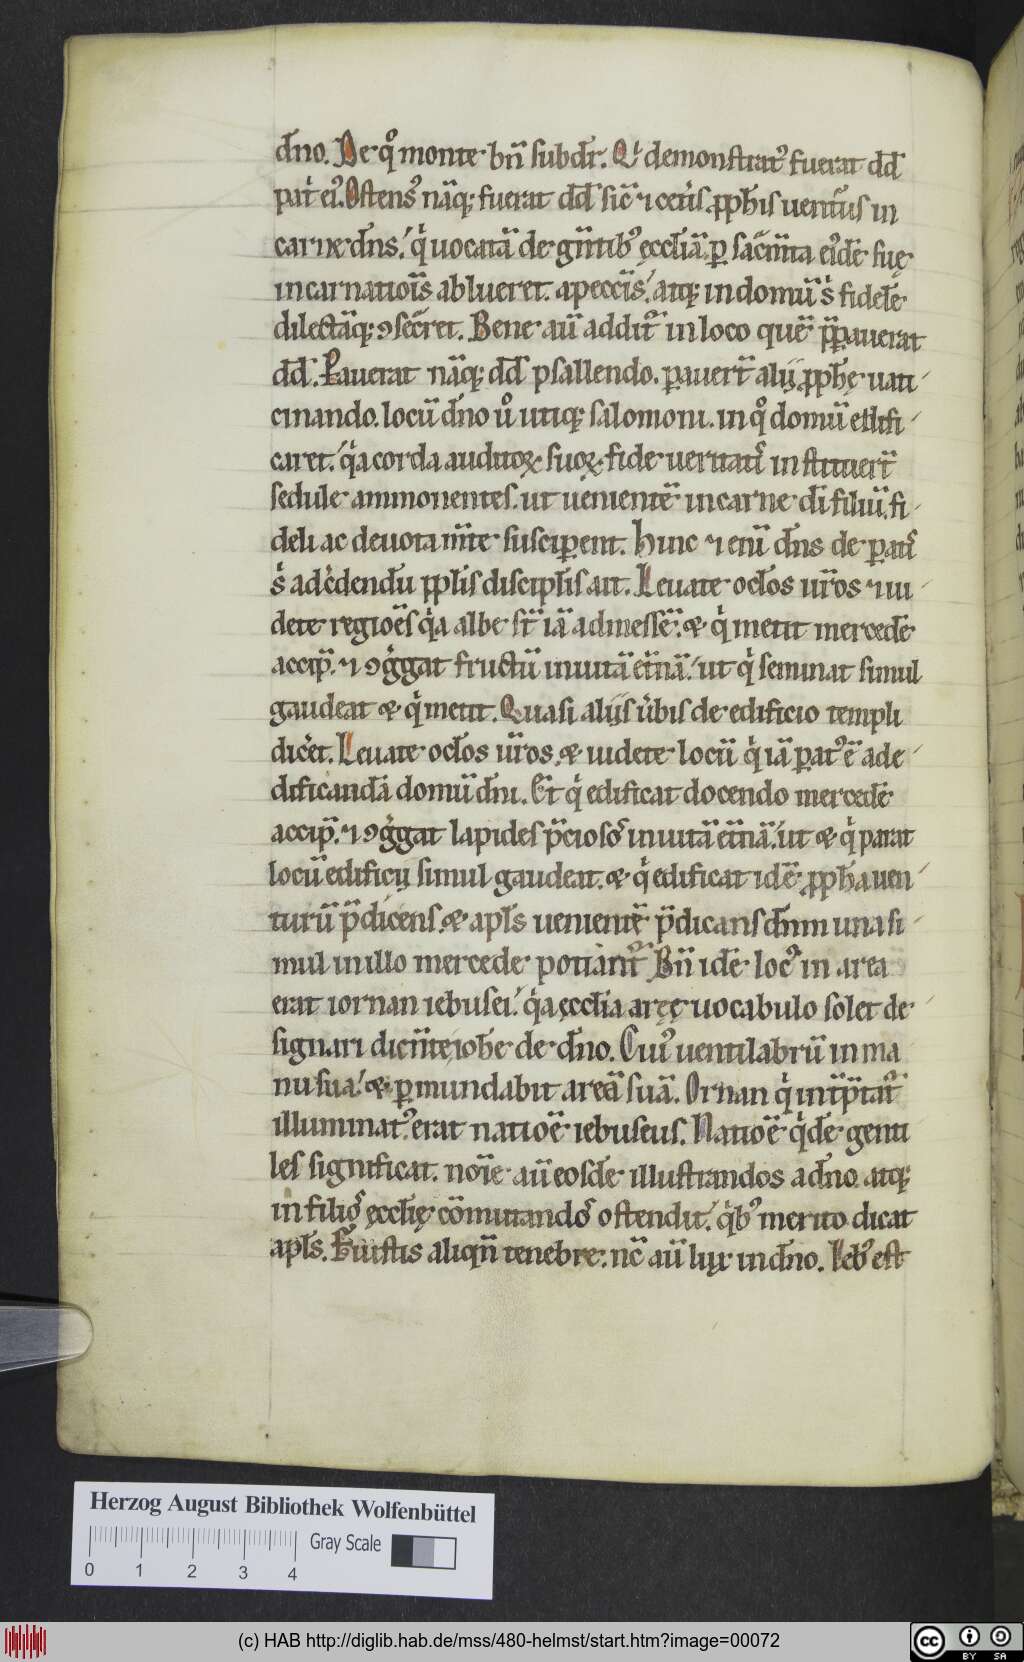 dn̄o. De qͦ monte bn̄ subdr̄. Qͥ demonstratꝰ fuerat dd̄
patͥ eiꝰ. Ostensꝰ nāqꝫ fuerat dd̄ sic̄ ⁊ cetͥs ꝓph̄is uentur̄us in
carne dn̄s. qͥ uocatā de gn̄tibꝰ ęccl̄iā ꝑ sac̄m̄ta eiꝰdē suę
incarnatiōis ablueret. a pecc̄is. atqꝫ in domū sͥ fidelē
dilectāqꝫ ꝯsec̄ret. Bene aū additͬ in loco quē p̄ꝑauerat
dd̄. Ꝑauerat nāqꝫ dd̄ psallendo. ꝑauer̄t alij ꝓph̄ę uati
cinando. locū dn̄o uͦ utiqꝫ salomoni. in qͦ domū edifi
caret. qͥa corda auditoꝝ suoꝝ fide ueritatͥ instituer̄t
sedule ammonentes. ut uenientē in carne dī filiū fi
deli ac deuota m̄te susciꝑent. Hinc ⁊ etiū dn̄s de ꝑatͥ
sͥ ad c̄dendū ppl̄is discipl̄is ait. Leuate ocl̄os ur̄os ⁊ ui
dete regiōes qͥa albe st̄ iā ad messē. & qͥ metit mercedē
accip̄. ⁊ ꝯgͣgat fructū in uitā et̄nā. ut qͥ seminat simul
gaudeat & qͥ metit. Quasi alijs ūbis de edificio templi
dic̄et. Leuate ocl̄os ur̄os. & uidete locū qͥ iā ꝑatꝰ ē ad e
dificandā domū dn̄i. Et qͥ edificat docendo mercedē
accip̄. ⁊ ꝯgͣgat lapides p̄ciosoͥ in uitā et̄nā. ut & qͥ parat
locū edificij simul gaudeat. & qͥ edificat idē ꝓph̄a uen
turū p̄dicens. & apl̄s uenientē p̄dicans dn̄m una si
mul in illo mercede potiant̄ͬ. Bn̄ idē locꝰ in area
erat iornan iebusei. qͥa ęccl̄ia aręę uocabulo solet de
signari dicn̄te ioh̄e de dn̄o. Cuiꝰ uentilabrū in ma
nu sua. & ꝑmundabit areā suā. Ornan qͥ int̄p̄tatͬ
illuminatꝰ erat natiōe iebuseus. Natiōe qͥdē genti
les significat. nōie aū eosdē illustrandos a dn̄o. atqꝫ
in filioͥ ęccl̄ię cōmutandoͥ ostendit. qͥbꝰ merito dicat
apl̄s. Fuistis aliqn̄ tenebre. nc̄ aū lux in dn̄o. Iebꝰ est
Herzog August Bibliothek Wolfenbüttel
Gray Scale
0 1 2 3 4
(c) HAB http://diglib.hab.de/mss/480-helmst/start.htm?image=00072
cc BY SA